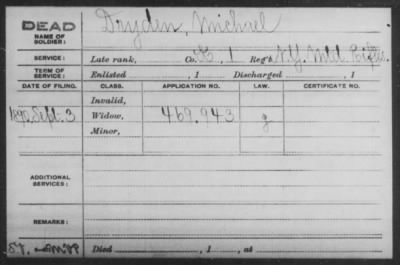 DEAD
NAME OF SOLDIER: Dryden, Michael
SERVICE: Late rank, Co. K, 1 Reg't N.Y. Mtd. Rifles.
TERM OF SERVICE: Enlisted , 1 Discharged , 1
DATE OF FILING. CLASS. APPLICATION NO. LAW. CERTIFICATE NO.
Invalid,
1890, Sept. 3 Widow, 469.943 g
Minor,
ADDITIONAL SERVICES:
REMARKS:
Died , 1 , at